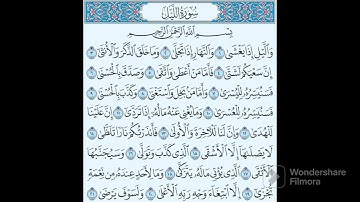 سُورَةُ اللَّيْلِ
بِسْمِ اللَّهِ الرَّحْمَنِ الرَّحِيمِ
وَاللَّيْلِ إِذَا يَغْشَى ١ وَالنَّهَارِ إِذَا تَجَلَّى ٢ وَمَا خَلَقَ الذَّكَرَ وَالْأُنْثَى ٣
إِنَّ سَعْيَكُمْ لَشَتَّى ٤ فَأَمَّا مَنْ أَعْطَى وَاتَّقَى ٥ وَصَدَّقَ بِالْحُسْنَى ٦
فَسَنُيَسِّرُهُ لِلْيُسْرَى ٧ وَأَمَّا مَنْ بَخِلَ وَاسْتَغْنَى ٨ وَكَذَّبَ بِالْحُسْنَى ٩
فَسَنُيَسِّرُهُ لِلْعُسْرَى ١٠ وَمَا يُغْنِي عَنْهُ مَالُهُ إِذَا تَرَدَّى ١١ إِنَّ عَلَيْنَا
لَلْهُدَى ١٢ وَإِنَّ لَنَا لَلْآخِرَةَ وَالْأُولَى ١٣ فَأَنْذَرْتُكُمْ نَارًا تَلَظَّى ١٤
لَا يَصْلَاهَا إِلَّا الْأَشْقَى ١٥ الَّذِي كَذَّبَ وَتَوَلَّى ١٦ وَسَيُجَنَّبُهَا
الْأَتْقَى ١٧ الَّذِي يُؤْتِي مَالَهُ يَتَزَكَّى ١٨ وَمَا لِأَحَدٍ عِنْدَهُ مِنْ نِعْمَةٍ
تُجْزَى ١٩ إِلَّا ابْتِغَاءَ وَجْهِ رَبِّهِ الْأَعْلَى ٢٠ وَلَسَوْفَ يَرْضَى ٢١
Wondershare
Filmora